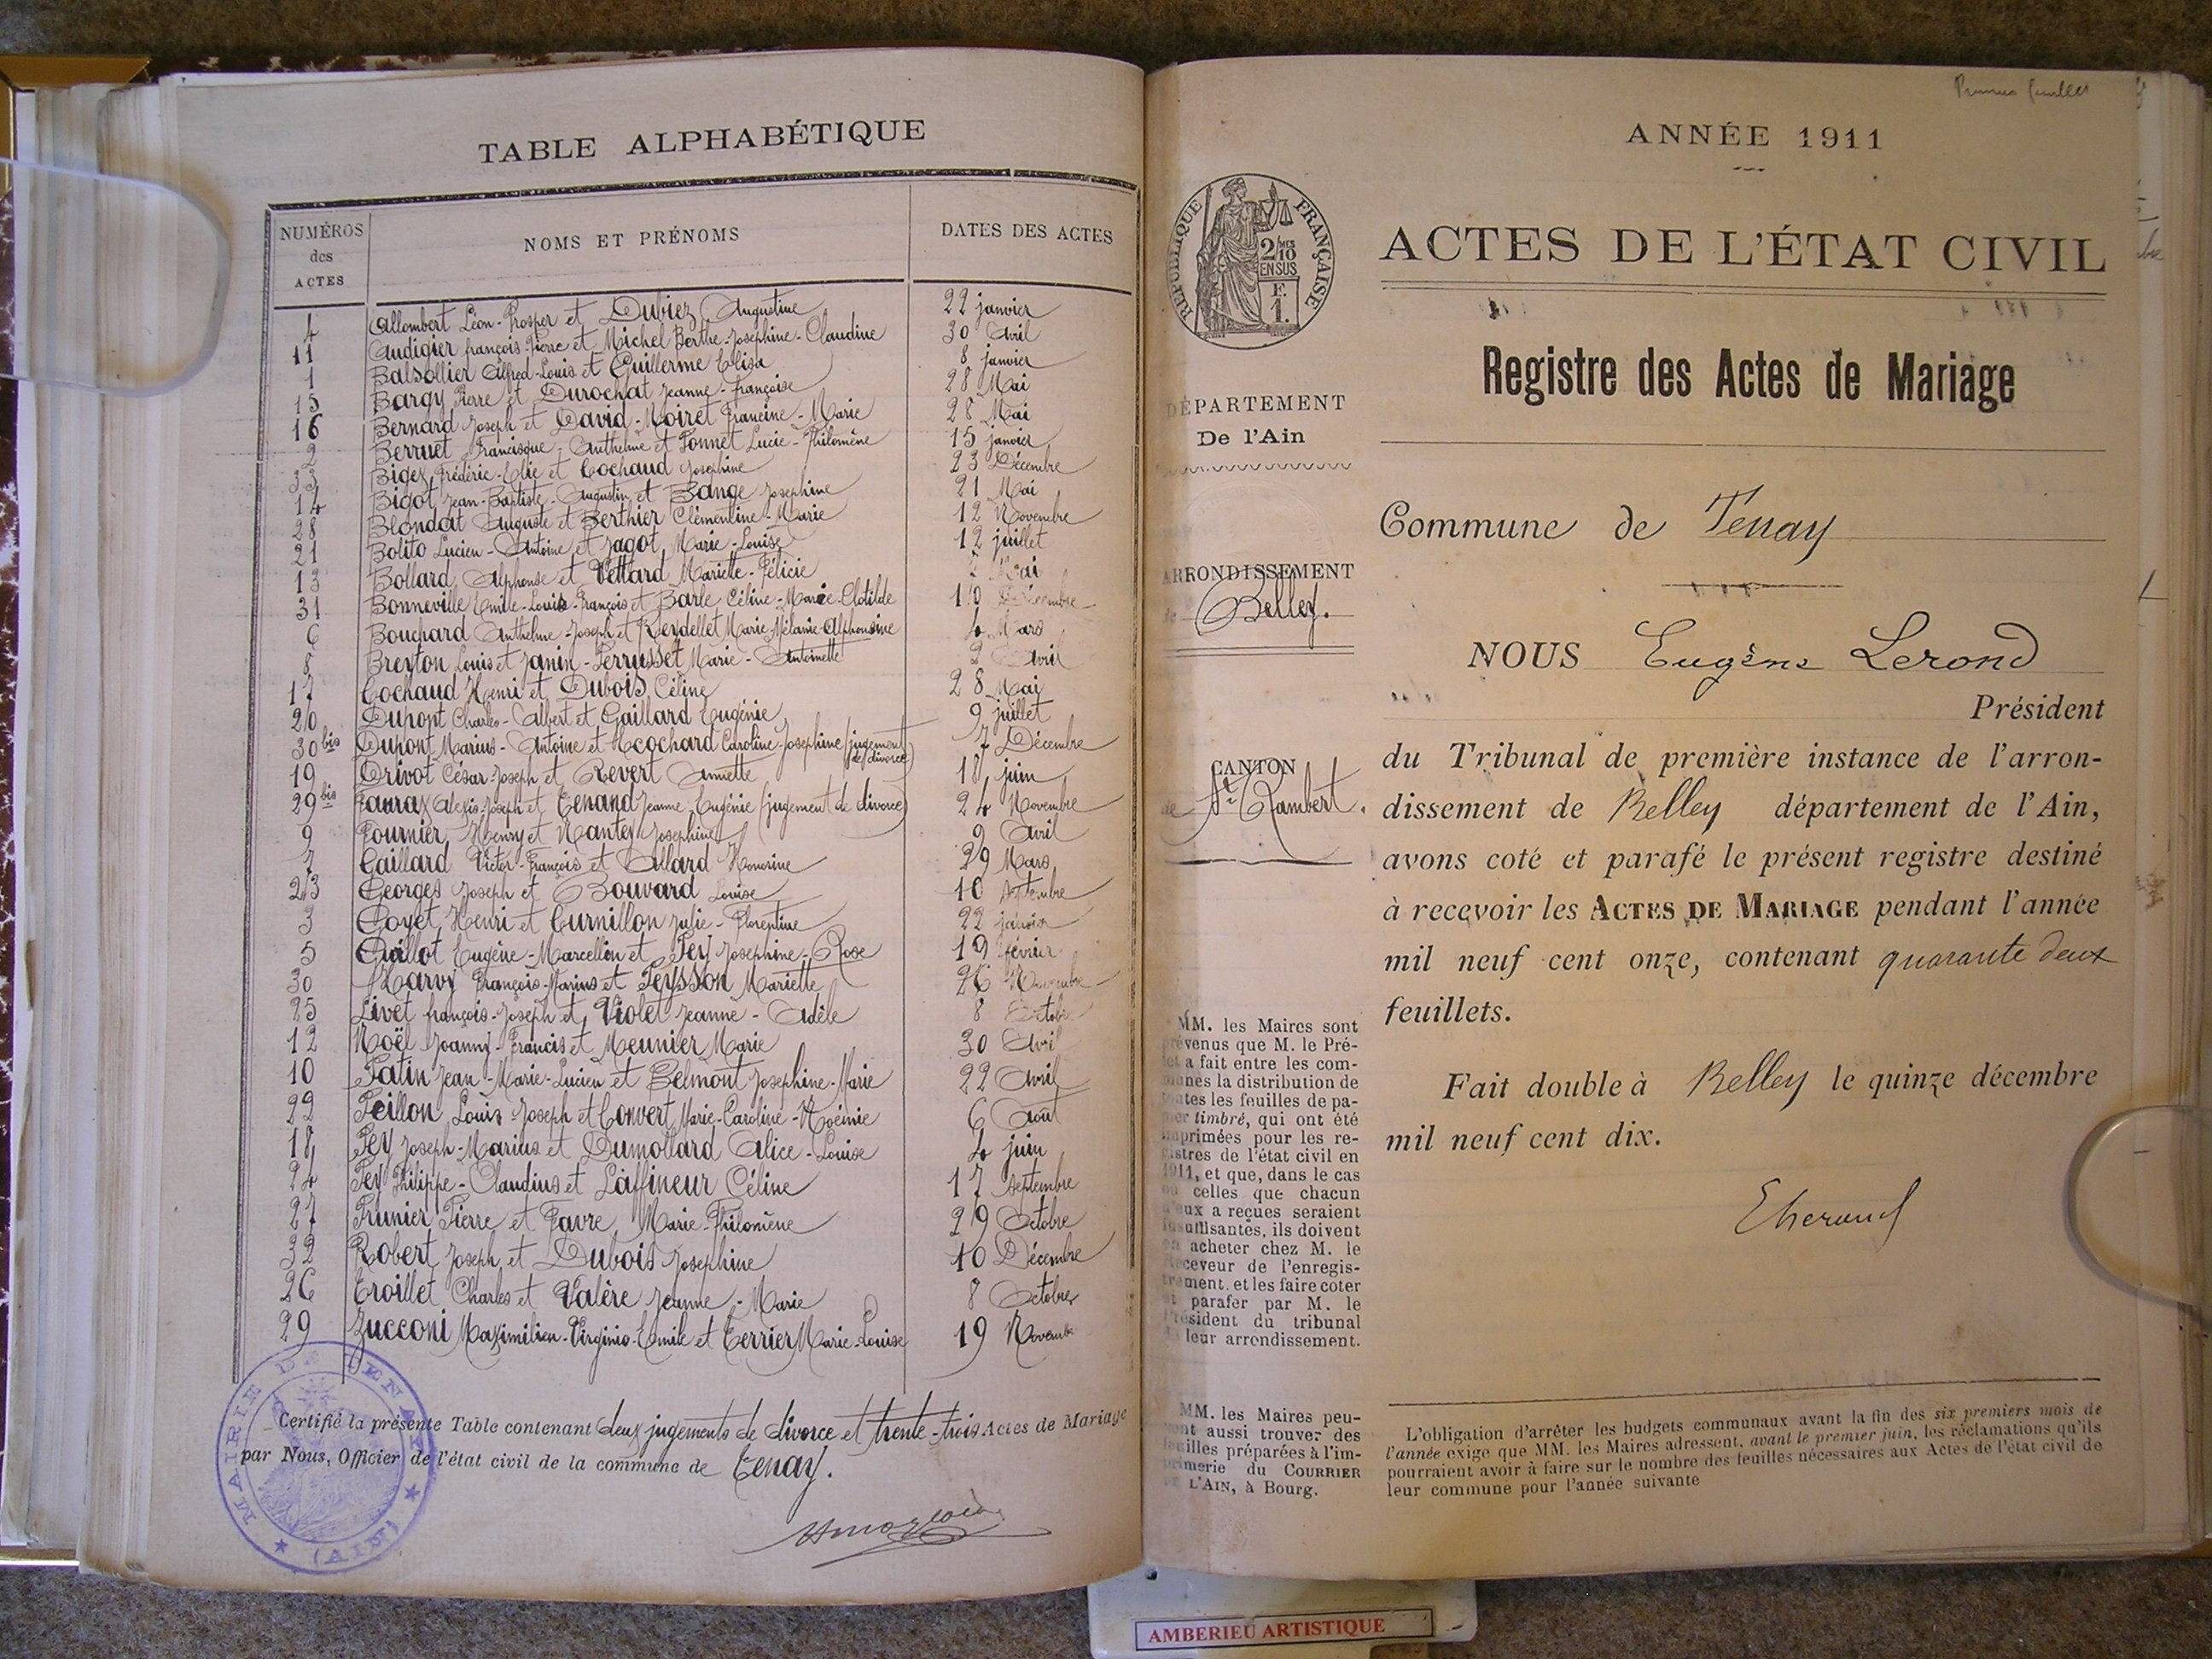 TABLE ALPHABÉTIQUE
NUMÉROS des ACTES
NOMS ET PRÉNOMS
DATES DES ACTES
4 Allombert Léon-Prosper et Dubiez Augustine 22 janvier
11 Audigier françois-Pierre et Michel Berthe-Josephine-Claudine 30 Avril
1 Balsollier Alfred-Louis et Guillerme Elisa 8 janvier
15 Bargy Pierre et Durochat Jeanne-françoise 28 Mai
16 Bernard Joseph et David-Moiret Francine-Marie 28 Mai
2 Berruet Francisque-Anthelme et Tonnet Lucie-Philomène 15 janvier
33 Bigex Frédéric-Elie et Cochaud Josephine 23 Décembre
14 Bigot Jean-Baptiste-Augustin et Bange Josephine 21 Mai
28 Blondat Auguste et Berthier Clémentine-Marie 12 Novembre
21 Bolito Lucien-Antoine et Jagot Marie-Louise 12 juillet
13 Bollard Alphonse et Vettard Mariette-Félicie Mai
31 Bonneville Emile-Louis-François et Barle Céline-Marie-Clotilde 10 Décembre
6 Bouchard Anthelme-Joseph et Reydellet Marie Mélanie Alphonsine 4 Mars
8 Breyton Louis et Janin-Perrusset Marie-Antoinette 2 Avril
17 Cochaud Henri et Dubois Céline 28 Mai
20 Dupont Charles-Albert et Gaillard Eugénie 9 juillet
30 bis Dupont Marius-Antoine et Hcochard Caroline-Josephine (jugement de divorce) 7 Décembre
19 Drivot César-Joseph et Revert Annette 18 juin
29 bis Fauraz Alexis-Joseph et Tenand Jeanne-Eugénie (jugement de divorce) 24 Novembre
9 Fournier Henry et Nantey Josephine 9 Avril
7 Gaillard Victor-François et Allard Honorine 29 Mars
23 Georges Joseph et Bouvard Louise 10 Septembre
3 Goyet Henri et Curnillon Julie-Florentine 22 janvier
5 Guillot Eugène-Marcellin et Pey Josephine-Rose 19 février
30 Harvy François-Marius et Peysson Mariette 26 Novembre
25 Livet françois-Joseph et Violet Jeanne-Adèle 8 Octobre
12 Noël Joanny-Francis et Meunier Marie 30 Avril
10 Patin Jean-Marie-Lucien et Belmont Josephine-Marie 22 Avril
22 Peillon Louis-Joseph et Convert Marie-Caroline-Noémie 6 Août
18 Pey Joseph-Marius et Dumollard Alice-Louise 4 juin
24 Pey Philippe-Claudius et Laffineur Céline 17 Septembre
27 Prunier Pierre et Favre Marie-Philomène 29 Octobre
32 Robert Joseph et Dubois Josephine 10 Décembre
26 Troillet Charles et Valère Jeanne-Marie 8 Octobre
29 Zucconi Maximilien-Virginio-Emile et Terrier Marie-Louise 19 Novembre
Certifié la présente Table contenant deux jugements de divorce et trente-trois Actes de Mariage
par Nous, Officier de l'état civil de la commune de Tenay.
MAIRIE DE TENAY (AIN)
ANNÉE 1911
RÉPUBLIQUE FRANÇAISE
2/10 EN SUS
F. 1.
ACTES DE L'ÉTAT CIVIL
Registre des Actes de Mariage
DÉPARTEMENT
De l'Ain
ARRONDISSEMENT
de Belley.
CANTON
de St Rambert.
Commune de Tenay
NOUS Eugène Lerond
Président
du Tribunal de première instance de l'arron-
dissement de Belley département de l'Ain,
avons coté et parafé le présent registre destiné
à recevoir les ACTES DE MARIAGE pendant l'année
mil neuf cent onze, contenant quarante deux
feuillets.
Fait double à Belley le quinze décembre
mil neuf cent dix.
MM. les Maires sont
prévenus que M. le Pré-
fet a fait entre les com-
munes la distribution de
toutes les feuilles de pa-
pier timbré, qui ont été
imprimées pour les re-
gistres de l'état civil en
1911, et que, dans le cas
où celles que chacun
d'eux a reçues seraient
insuffisantes, ils doivent
en acheter chez M. le
Receveur de l'enregis-
trement, et les faire coter
et parafer par M. le
Président du tribunal
de leur arrondissement.
MM. les Maires peu-
vent aussi trouver des
feuilles préparées à l'im-
primerie du COURRIER
DE L'AIN, à Bourg.
L'obligation d'arrêter les budgets communaux avant la fin des six premiers mois de
l'année exige que MM. les Maires adressent, avant le premier juin, les réclamations qu'ils
pourraient avoir à faire sur le nombre des feuilles nécessaires aux Actes de l'état civil de
leur commune pour l'année suivante
AMBERIEU ARTISTIQUE